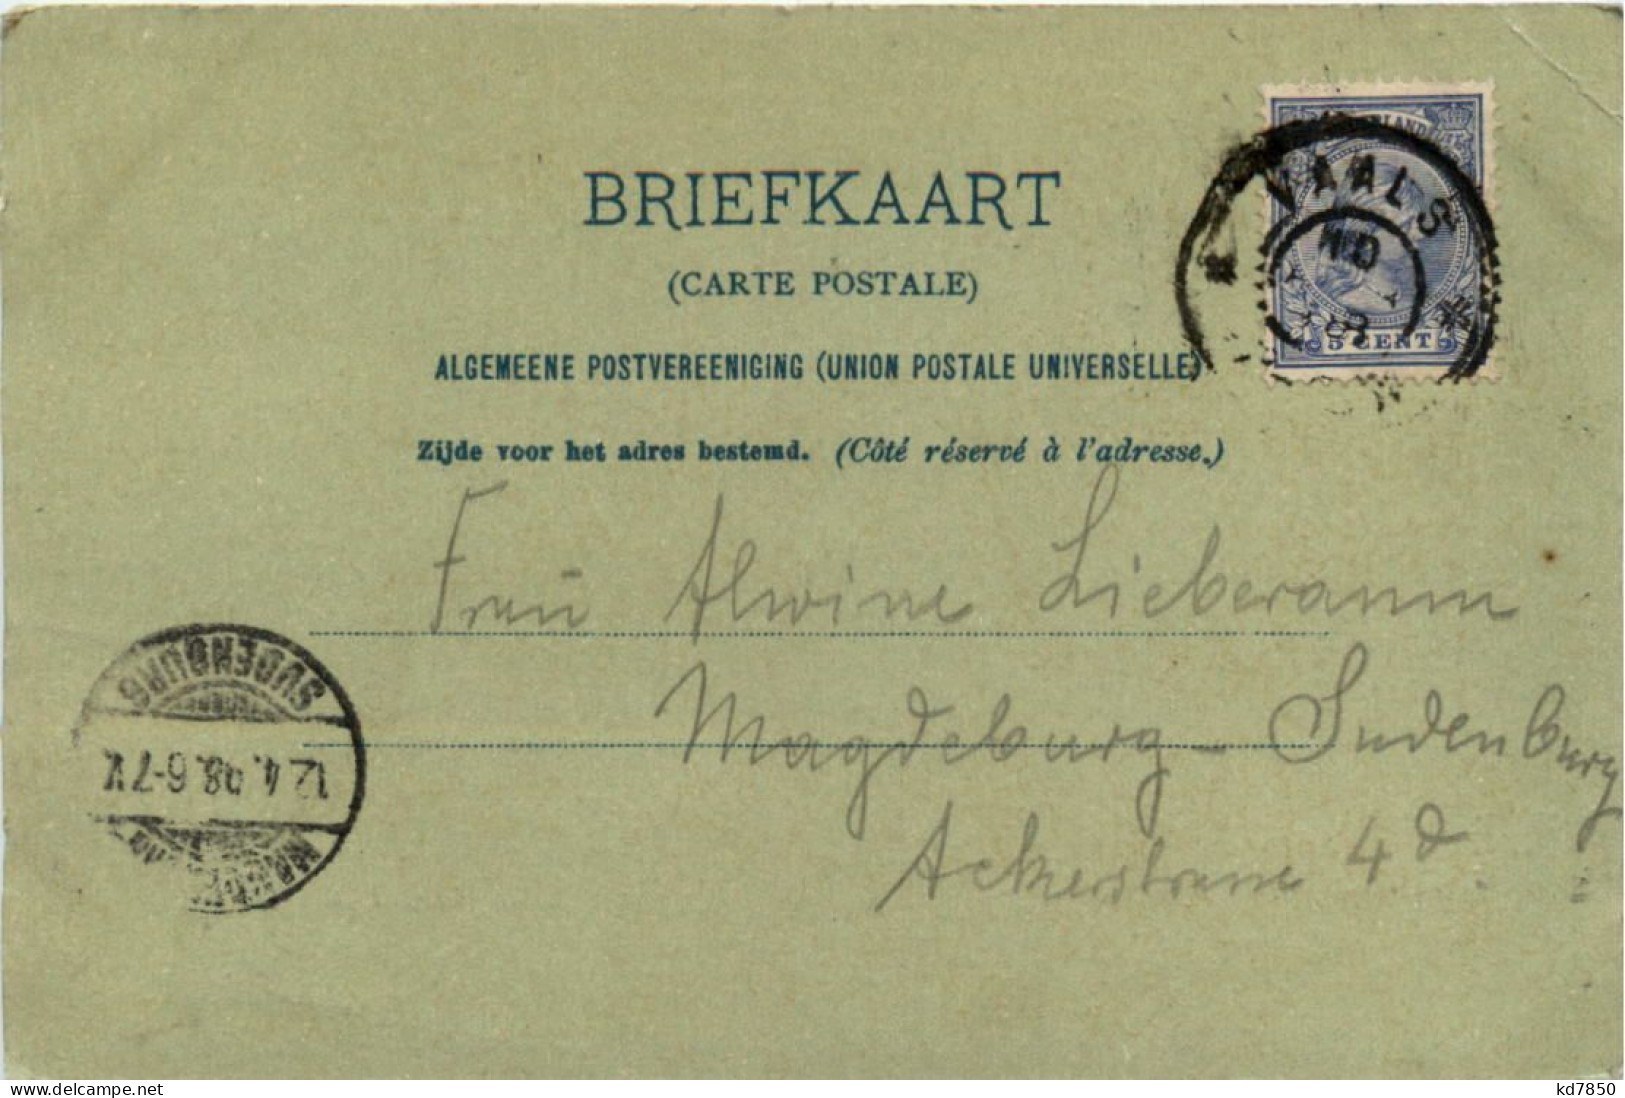 BRIEFKAART
(CARTE POSTALE)
ALGEMEENE POSTVEREENIGING (UNION POSTALE UNIVERSELLE)
Zijde voor het adres bestemd. (Côté réservé à l'adresse.)
VAALS
5 CENT
Frau Alwine Lieberamm
Magdeburg - Sudenburg
Ackerstrasse 4 d.
SUDENBURG
12.4.98.6-7V.
www.delcampe.net
kd7850